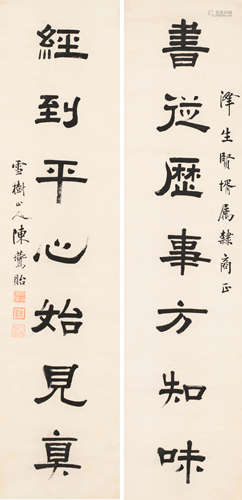 澤生賢壻屬隸商正
書從歷事方知味
經到平心始見真
雪樹山人陳鶯貽